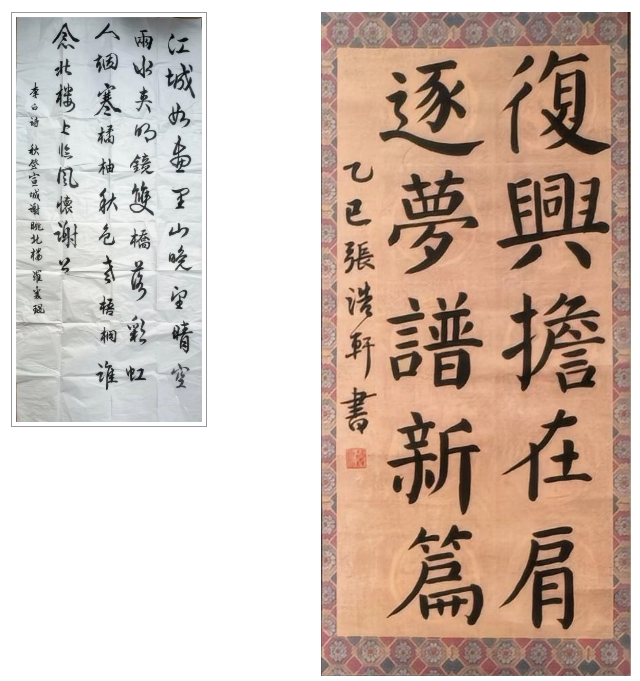 江城如畫里山晚望晴空
兩水夹明鏡雙橋落彩虹
人烟寒橘柚秋色老梧桐誰
念北楼上临风懷謝公
李白诗 秋登宣城謝朓北楼 羅襄琨
復興擔在肩
逐夢譜新篇
乙巳張浩軒書